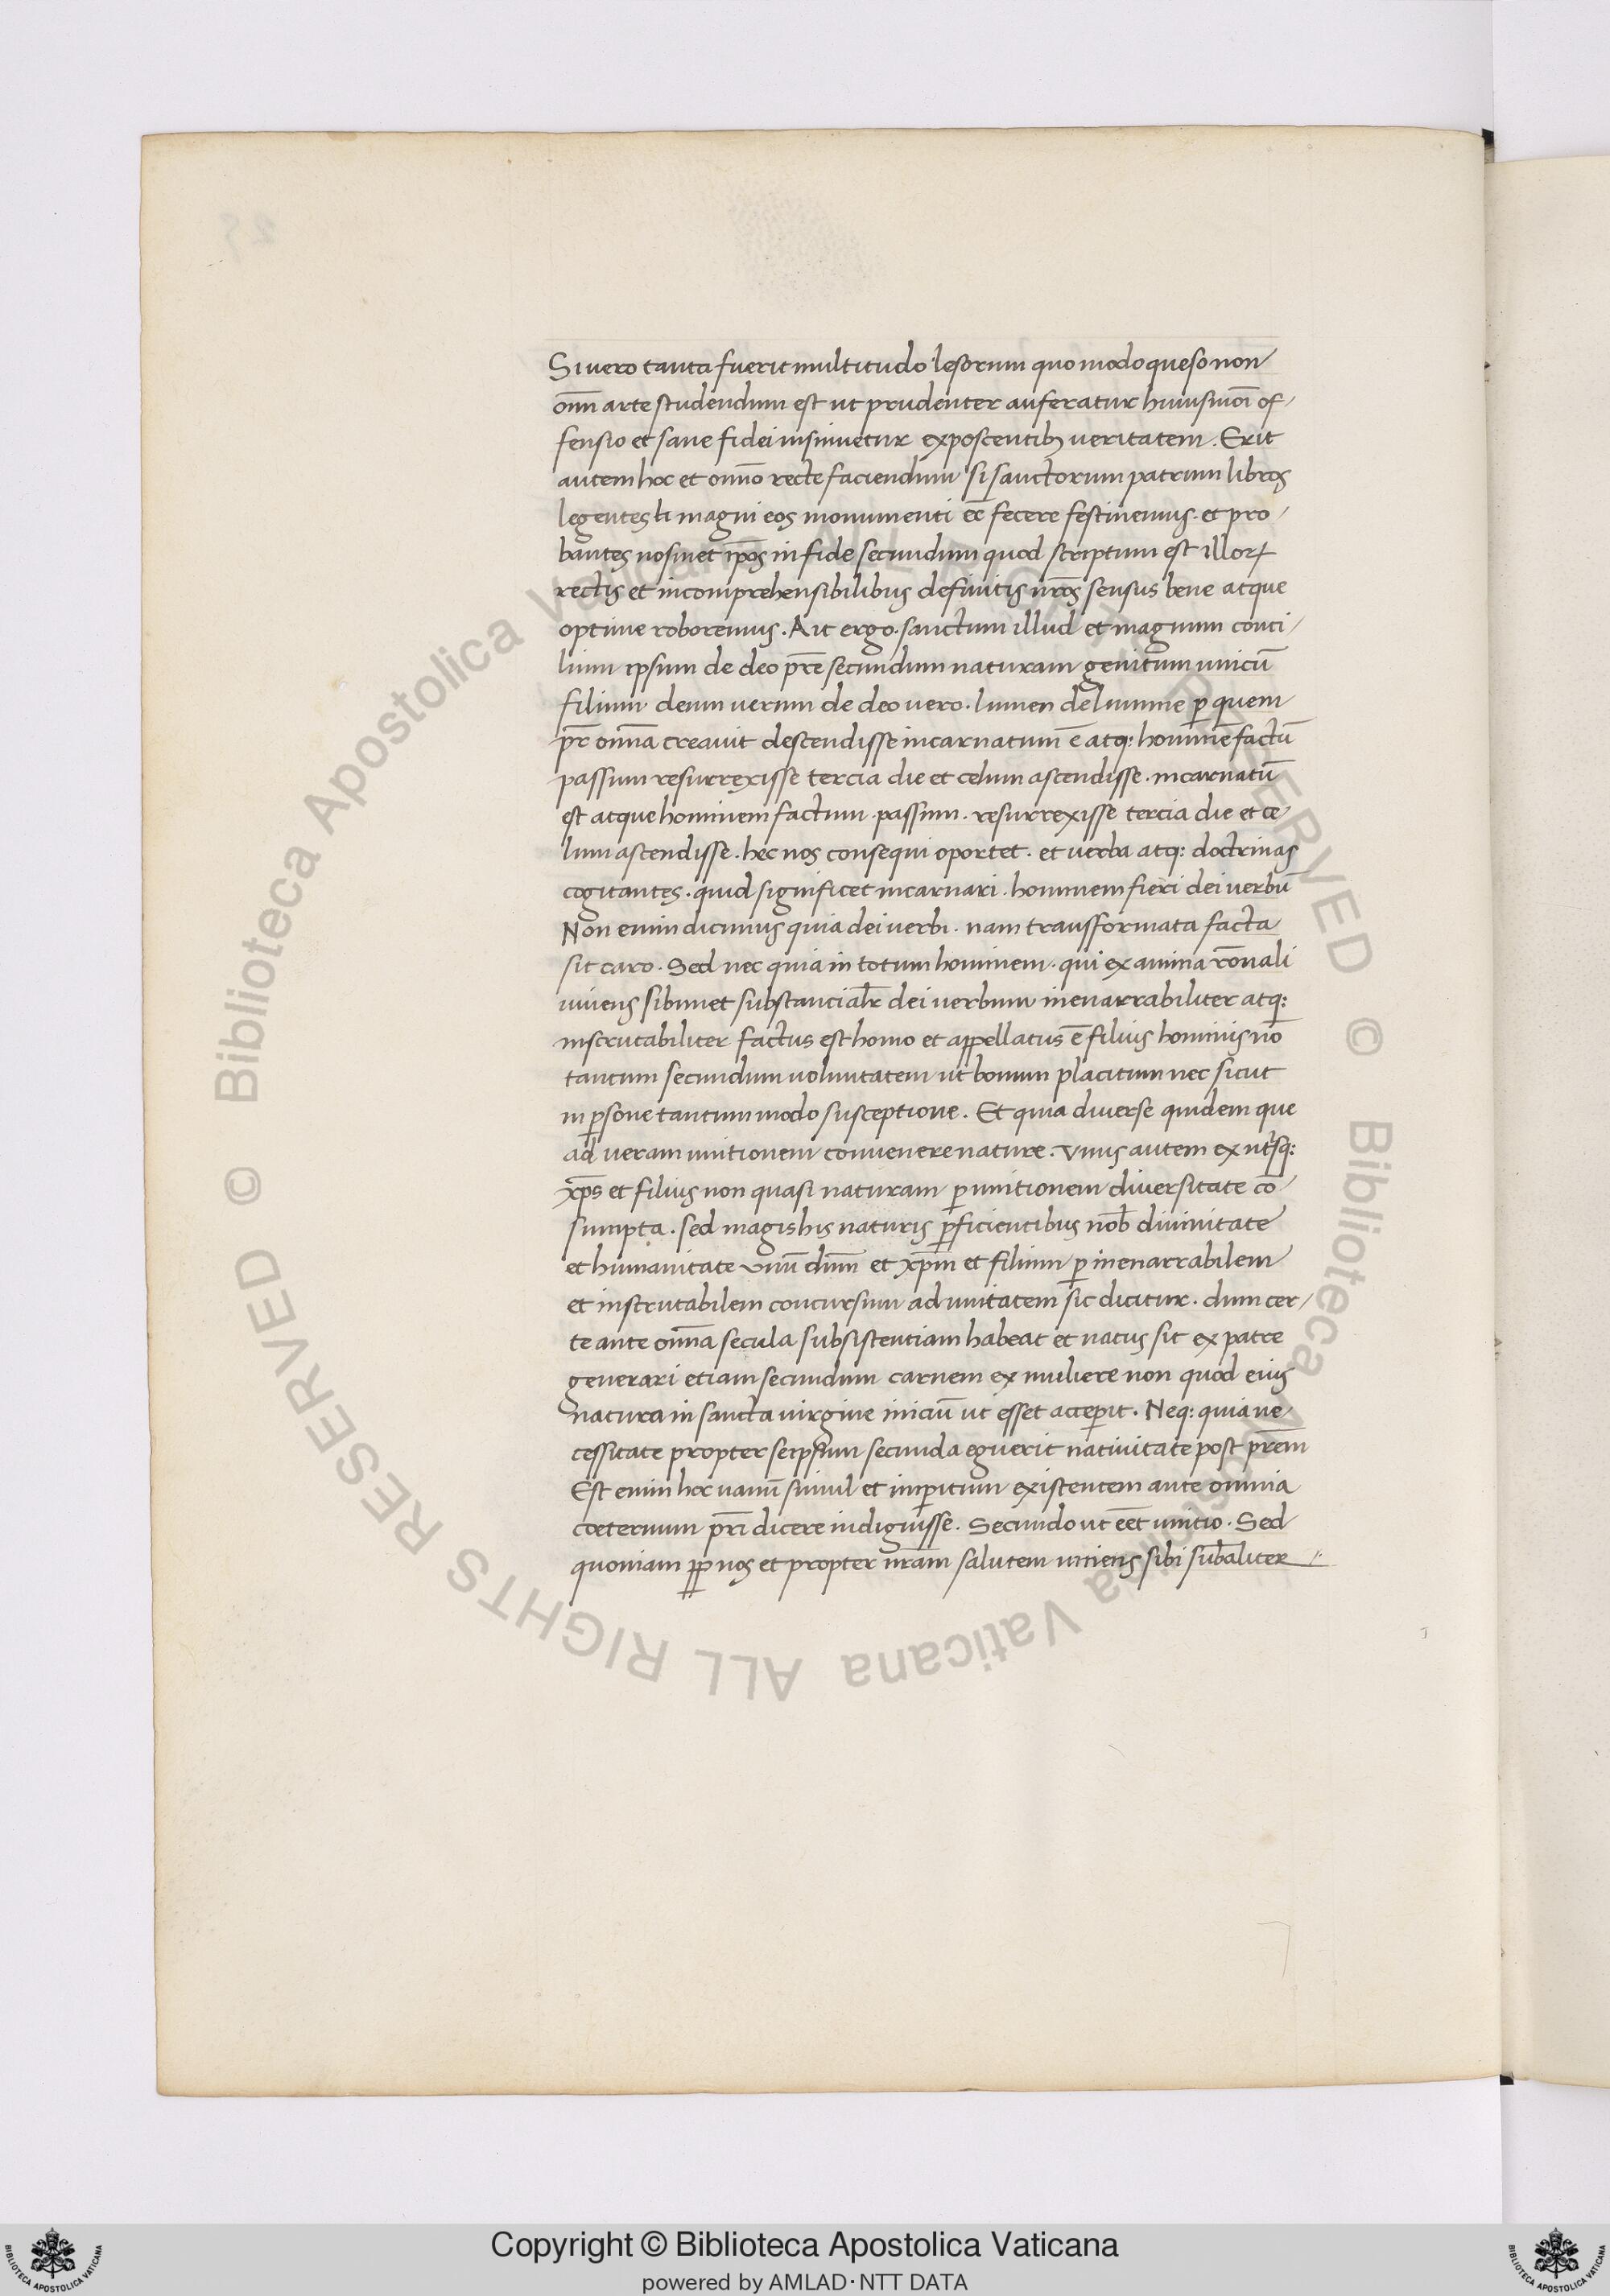 Si uero tanta fuerit multitudo lesorum quo modo queso non
om̄i arte studendum est ut prudenter auferatur huiusmōi of-
fensio et sane fidei insinuetur exposcentibꝫ ueritatem. Erit
autem hoc et om̄o recte faciendum si sanctorum patrum libros
legentes ti magni eos monumenti ēē fecere festinemus. et pro-
bantes nosmet ip̄os in fide secundum quod scriptum est illoꝝ
rectis et incomprehensibilibus definitis n̄ros sensus bene atque
optime roboremus. Ait ergo. sanctum illud et magnum conci-
lium ipsum de deo p̄re secundum naturam genitum unicū
filium deum uerum de deo uero. lumen de lumine ꝑ quem
pr̄ om̄a creauit descendisse incarnatum ē atq: hominē factū
passum resurrexisse tercia die et celum ascendisse. incarnatū
est atque hominem factum. passum. resurrexisse tercia die et ce-
lum ascendisse. hec nos consequi oportet. et uerba atq: doctrinas
cogitantes. quid significet incarnari. hominem fieri dei uerbū
Non enim dicimus quia dei uerbi. nam transformata facta
sit caro. Sed nec quia in totum hominem. qui ex anima rōnali
uniens sibimet substancialr̄ dei uerbum inenarrabiliter atq:
inscrutabiliter factus est homo et appellatus ē filius hominis nō
tantum secundum uoluntatem ut bonum placitum nec sicut
in ꝑsone tantum modo susceptione. Et quia diuerse quidem que
ad ueram unitionem conuenere nature. Vnus autem ex utsq:
xp̄s et filius non quasi naturam ꝑ unitionem diuersitate cō-
sumpta. sed magis his naturis ꝑficientibus nob̄ diuinitate
et humanitate unū dn̄m et xp̄m et filium ꝑ inenarrabilem
et inscrutabilem concursum ad unitatem sic dicitur. dum cer-
te ante om̄a secula subsistentiam habeat et natus sit ex patre
generari etiam secundum carnem ex muliere non quod eius
natura in sancta uirgine iniciū ut esset acceꝑit. Neq: quia ne-
cessitate propter seipsum secunda eguerit natiuitate post pr̄em
Est enim hoc uanū simul et imꝑitum existentem ante omnia
coeternum pr̄i dicere indiguisse. Secundo ut eēt unitio. Sed
quoniam ꝓp nos et propter n̄ram salutem uniens sibi sub̄aliter
© Biblioteca Apostolica Vaticana ALL RIGHTS RESERVED © Biblioteca Apostolica Vaticana ALL RIGHTS RESERVED
Copyright © Biblioteca Apostolica Vaticana
powered by AMLAD·NTT DATA
BIBLIOTECA APOSTOLICA VATICANA
BIBLIOTECA APOSTOLICA VATICANA